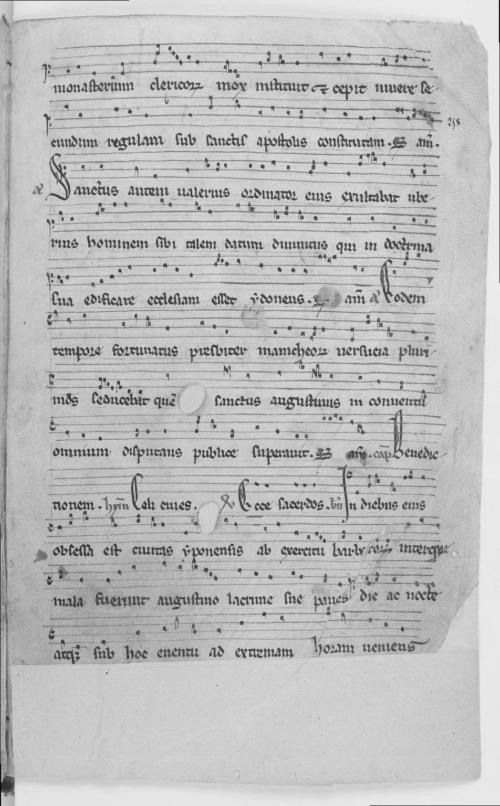 monasterium clericorꝝ mox instituit et cepit uiuere se-
258
cundum regulam sub sanctis apostolis constitutam. am̄.
Sanctus autem ualerius ordinator eius exultabat ube-
rius hominem sibi talem datum diuinitus qui in doctrina
sua edificare ecclesiam esset ydoneus. am̄ Eodem
tempore fortunatus presbiter manicheorꝝ uersucia pluri-
mos seducebat quē sanctus augustinus in conuentu
omnium disputans publice superauit. am̄. cap̄. Benedic-
tionem. hym̄ Celi ciues. Ecce sacerdos. In diebus eius
obsessa est ciuitas yponensis ab exercitu barbarorꝝ interque
mala fuerunt augustino lacrime sue panes die ac nocte
atqꝫ sub hoc euentu ad extremam horam ueniens